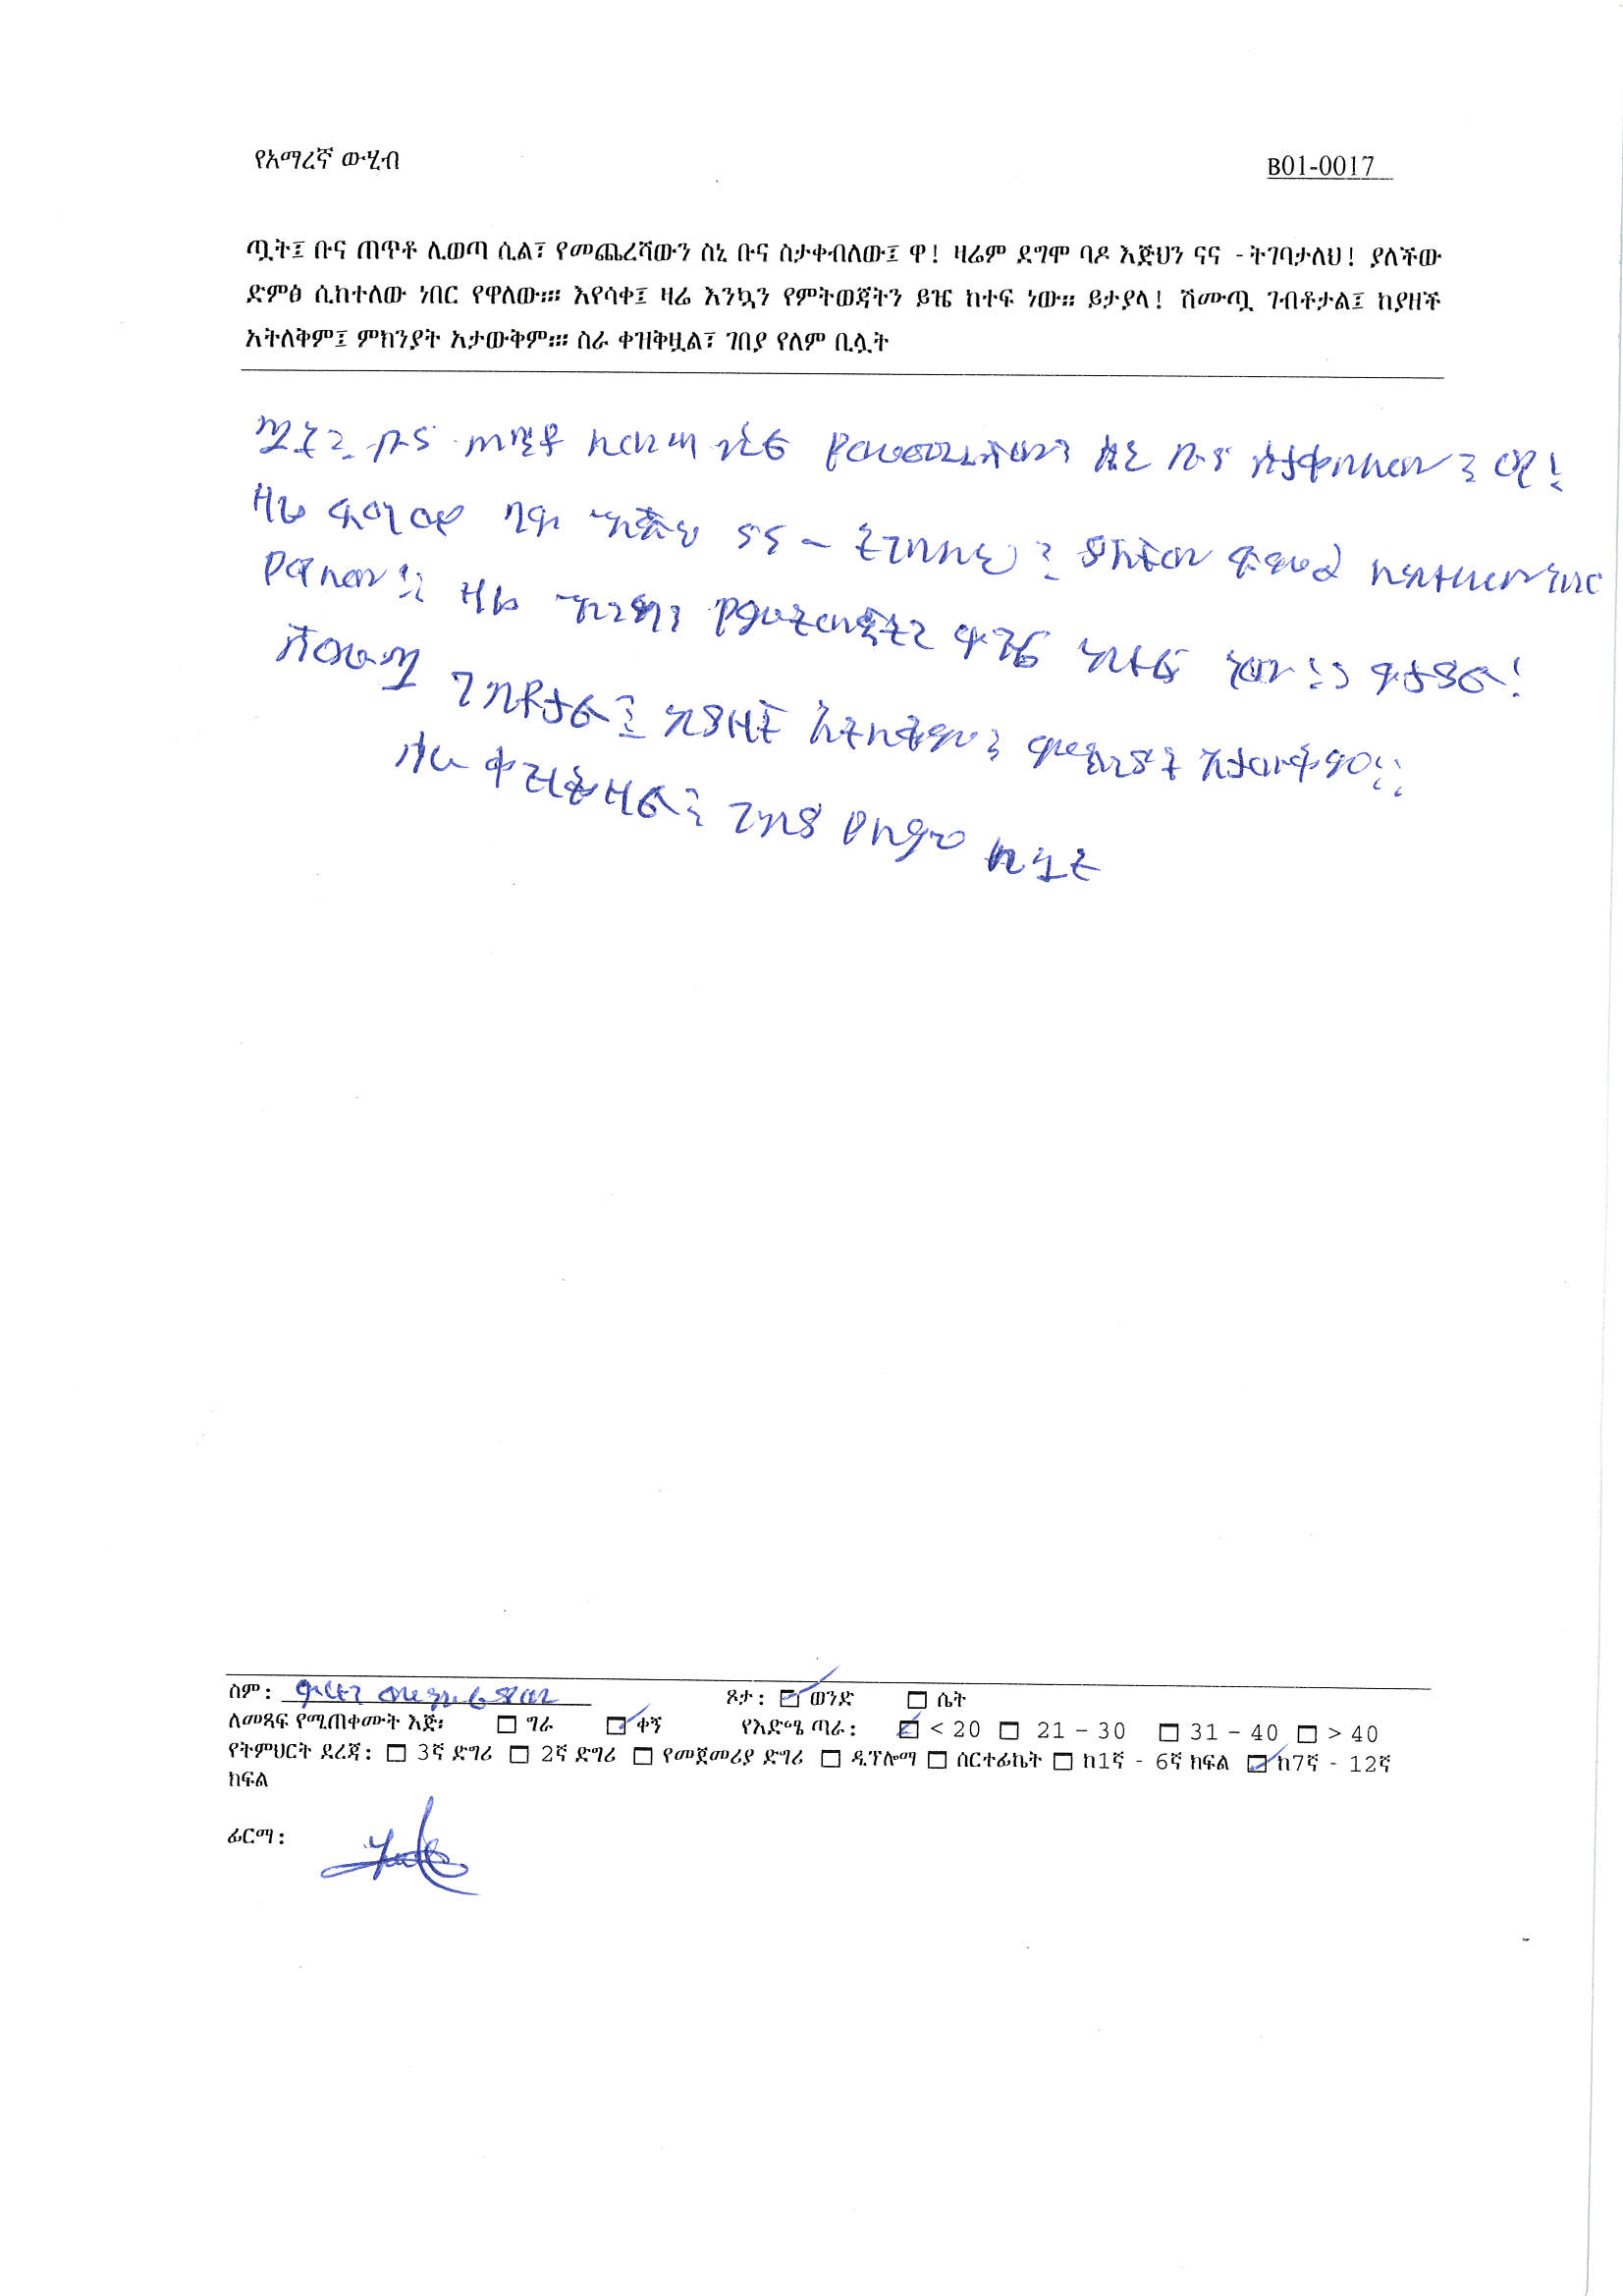 የአማረኛ ውሂብ
B01-0017
ጧት፤ ቡና ጠጥቶ ሊወጣ ሲል፣ የመጨረሻውን ስኒ ቡና ስታቀብለው፤ ዋ! ዛሬም ደግሞ ባዶ እጅህን ናና -ትገባታለህ! ያለችው
ድምፅ ሲከተለው ነበር የዋለው። እየሳቀ፤ ዛሬ እንኳን የምትወጃትን ይዤ ከተፍ ነው። ይታያላ! ሽሙጧ ገብቶታል፤ ከያዘች
አትለቅም፤ ምክንያት አታውቅም። ስራ ቀዝቅዟል፣ ገበያ የለም ቢሏት
ጧት፤ ቡና ጠጥቶ ሊወጣ ሲል የመጨረሻውን ስኒ ቡና ስታቀብለው፤ ዋ!
ዛሬ ደግሞ ባዶ እጅህ ናና - ትገባለህ፤ ያለችው ድምፅ ሲከተለው ነበር
የዋለው። ዛሬ እንኳን የምትወጃትን ይዤ ከተፍ ነው። ይታያል!
ሽሙጧ ገብቶታል፤ ከያዘች አትለቅም፤ ምክንያት አታውቅም።
ስራ ቀዝቅዛል፤ ገበያ የለም ቢሏት
ስም:
ጾታ: ወንድ ሴት
ለመጻፍ የሚጠቀሙት እጅ፡ ግራ ቀኝ የእድሜ ጣራ: < 20 21 – 30 31 – 40 > 40
የትምህርት ደረጃ: 3ኛ ድግሪ 2ኛ ድግሪ የመጀመሪያ ድግሪ ዲፕሎማ ሰርተፊኬት ከ1ኛ - 6ኛ ክፍል ከ7ኛ - 12ኛ
ክፍል
ፊርማ: